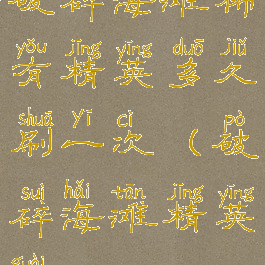 破碎海滩稀
yǒu jīng yīng duō jiǔ
有精英多久
shuā yī cì pò
刷一次(破
suì hǎi tān jīng yīng
碎海滩精英